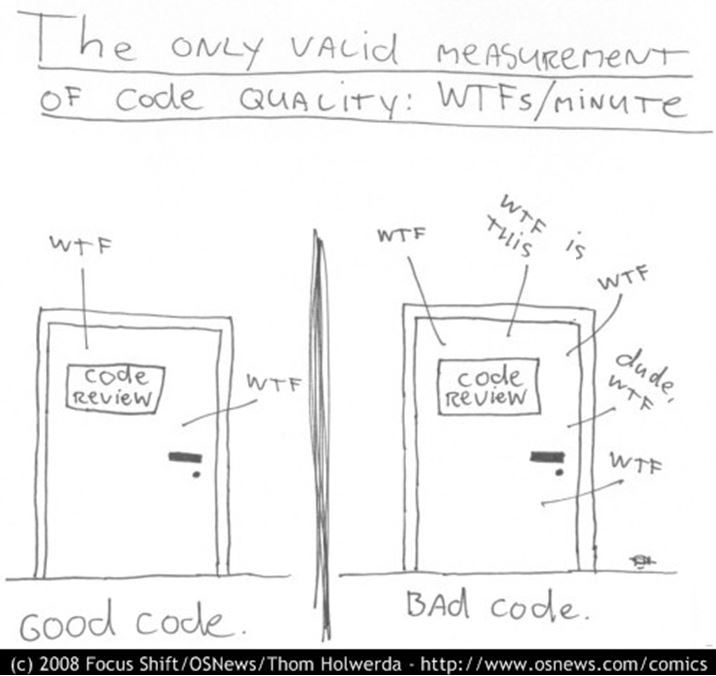 The ONLY VALID MEASUREMENT
OF CODE QUALITY: WTFs/MINUTE
WTF
CODE
REVIEW
WTF
GOOD CODE.
WTF
WTF is
THIS
WTF
dude,
WTF
CODE
REVIEW
WTF
BAD CODE.
(c) 2008 Focus Shift/OSNews/Thom Holwerda - http://www.osnews.com/comics